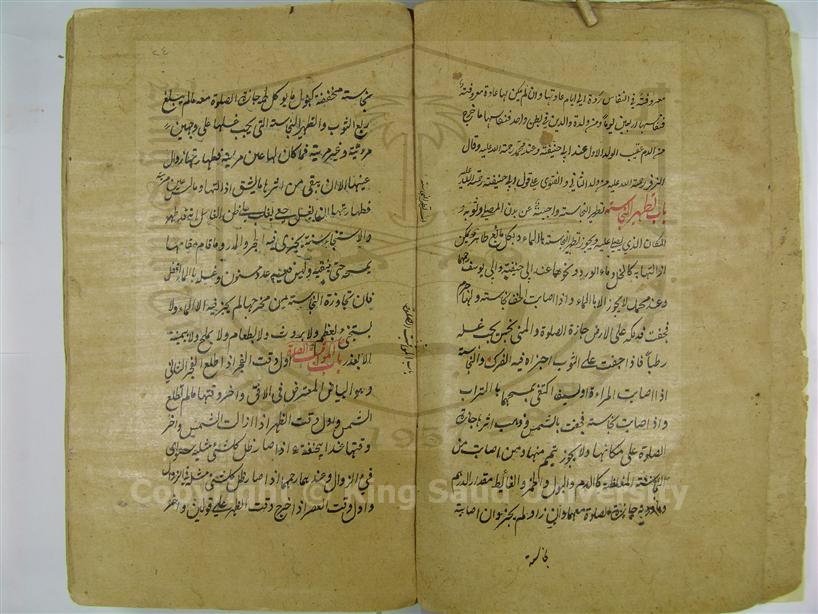 معروفة في النفاس ردة الى ايام عادتها وان لم يكن لها عادة معروفة
فنفاسها اربعين يوما ومن ولدة والدين في بطن واحد فنفاسها ما خرج
من الدم عقيب الولد الاول عند ابي حنيفة وعند محمد رحمة الله عليه وقال
الزفر رحمة الله عليه من ولد الثاني والفتوى على قول ابي حنيفة رحمة الله عليه
باب تطهير النجاسة تطهير النجاسة واجبة عن بدن المصلي وثوبه و
المكان الذي يصلي عليه ويجوز تطهير النجاسة بالماء وبكل مائع طاهر يمكن
ازالتها به كالخل وماء الورد ونحوهما عند ابي حنيفة وابي يوسف
وعند محمد لا يجوز الا بالماء واذا اصابت الخف نجاسة ولها جرم
فجفت فدلكه على الارض جازة الصلوة والمني نجس يجب غسله
رطبا فاذا جفت على الثوب اجزاه فيه الفرك والنجاسة
اذا اصابت المراءة او السيف اكتفي بمسحها بالتراب
واذا اصابت نجاسة فجفت بالشمس وذهب اثرها جازة
الصلوة على مكانها ولا يجوز تيمم منها ومن اصابت من
النجاسة المغلظة كالدم والبول والخمر والغائط مقدار الدرهم
وما دونه جازة الصلوة معها وان زاد لم يجز وان اصابة
نجاسة
باب تطهير النجاسة
باب المواقيت الصلوة
٢٤
نجاسة مخففة كبول ما يوكل لحمه جازة الصلوة معه مالم يبلغ
ربع الثوب والتطهير النجاسة التي يجب غسلها على وجهين
مرئية وغير مرئية فما كان لها عين مرئية فطهارتها زوال
عينها الا ان يبقى من اثرها ما يشق ازالتها وما ليس عين مرئية
فطهارتها ان يغسل حتى يغلب على ظن الغاسل انه قد طهر
والاستنجاء سنة يجزي فيه الحجر والمدر وما قام مقامها
يمسحه حتى ينقيه وليس فيه عدد مسنون وغسله بالماء افضل
فان تجاوزة النجاسة من مخرجها لم يجز فيه الا الماء ولا
يستنجي بعظم ولا بروث ولا بطعام ولا بملح ولا بيمينه
الا بعذر باب المواقيت الصلوة اول وقت الفجر اذا اطلع الفجر الثاني
وهو البياض المعترض في الافق واخر وقتها مالم تطلع
الشمس واول وقت الظهر اذا زالت الشمس واخر
وقتها عند ابي حنيفة اذا صار ظل كل شئ مثليه سوى
في الزوال وعندهما رحمهما اذا صار ظل كل شئ مثله في الزوال
واول وقت العصر اذا خرج وقت الظهر على قولين واخر
Copyright © King Saud University
1957